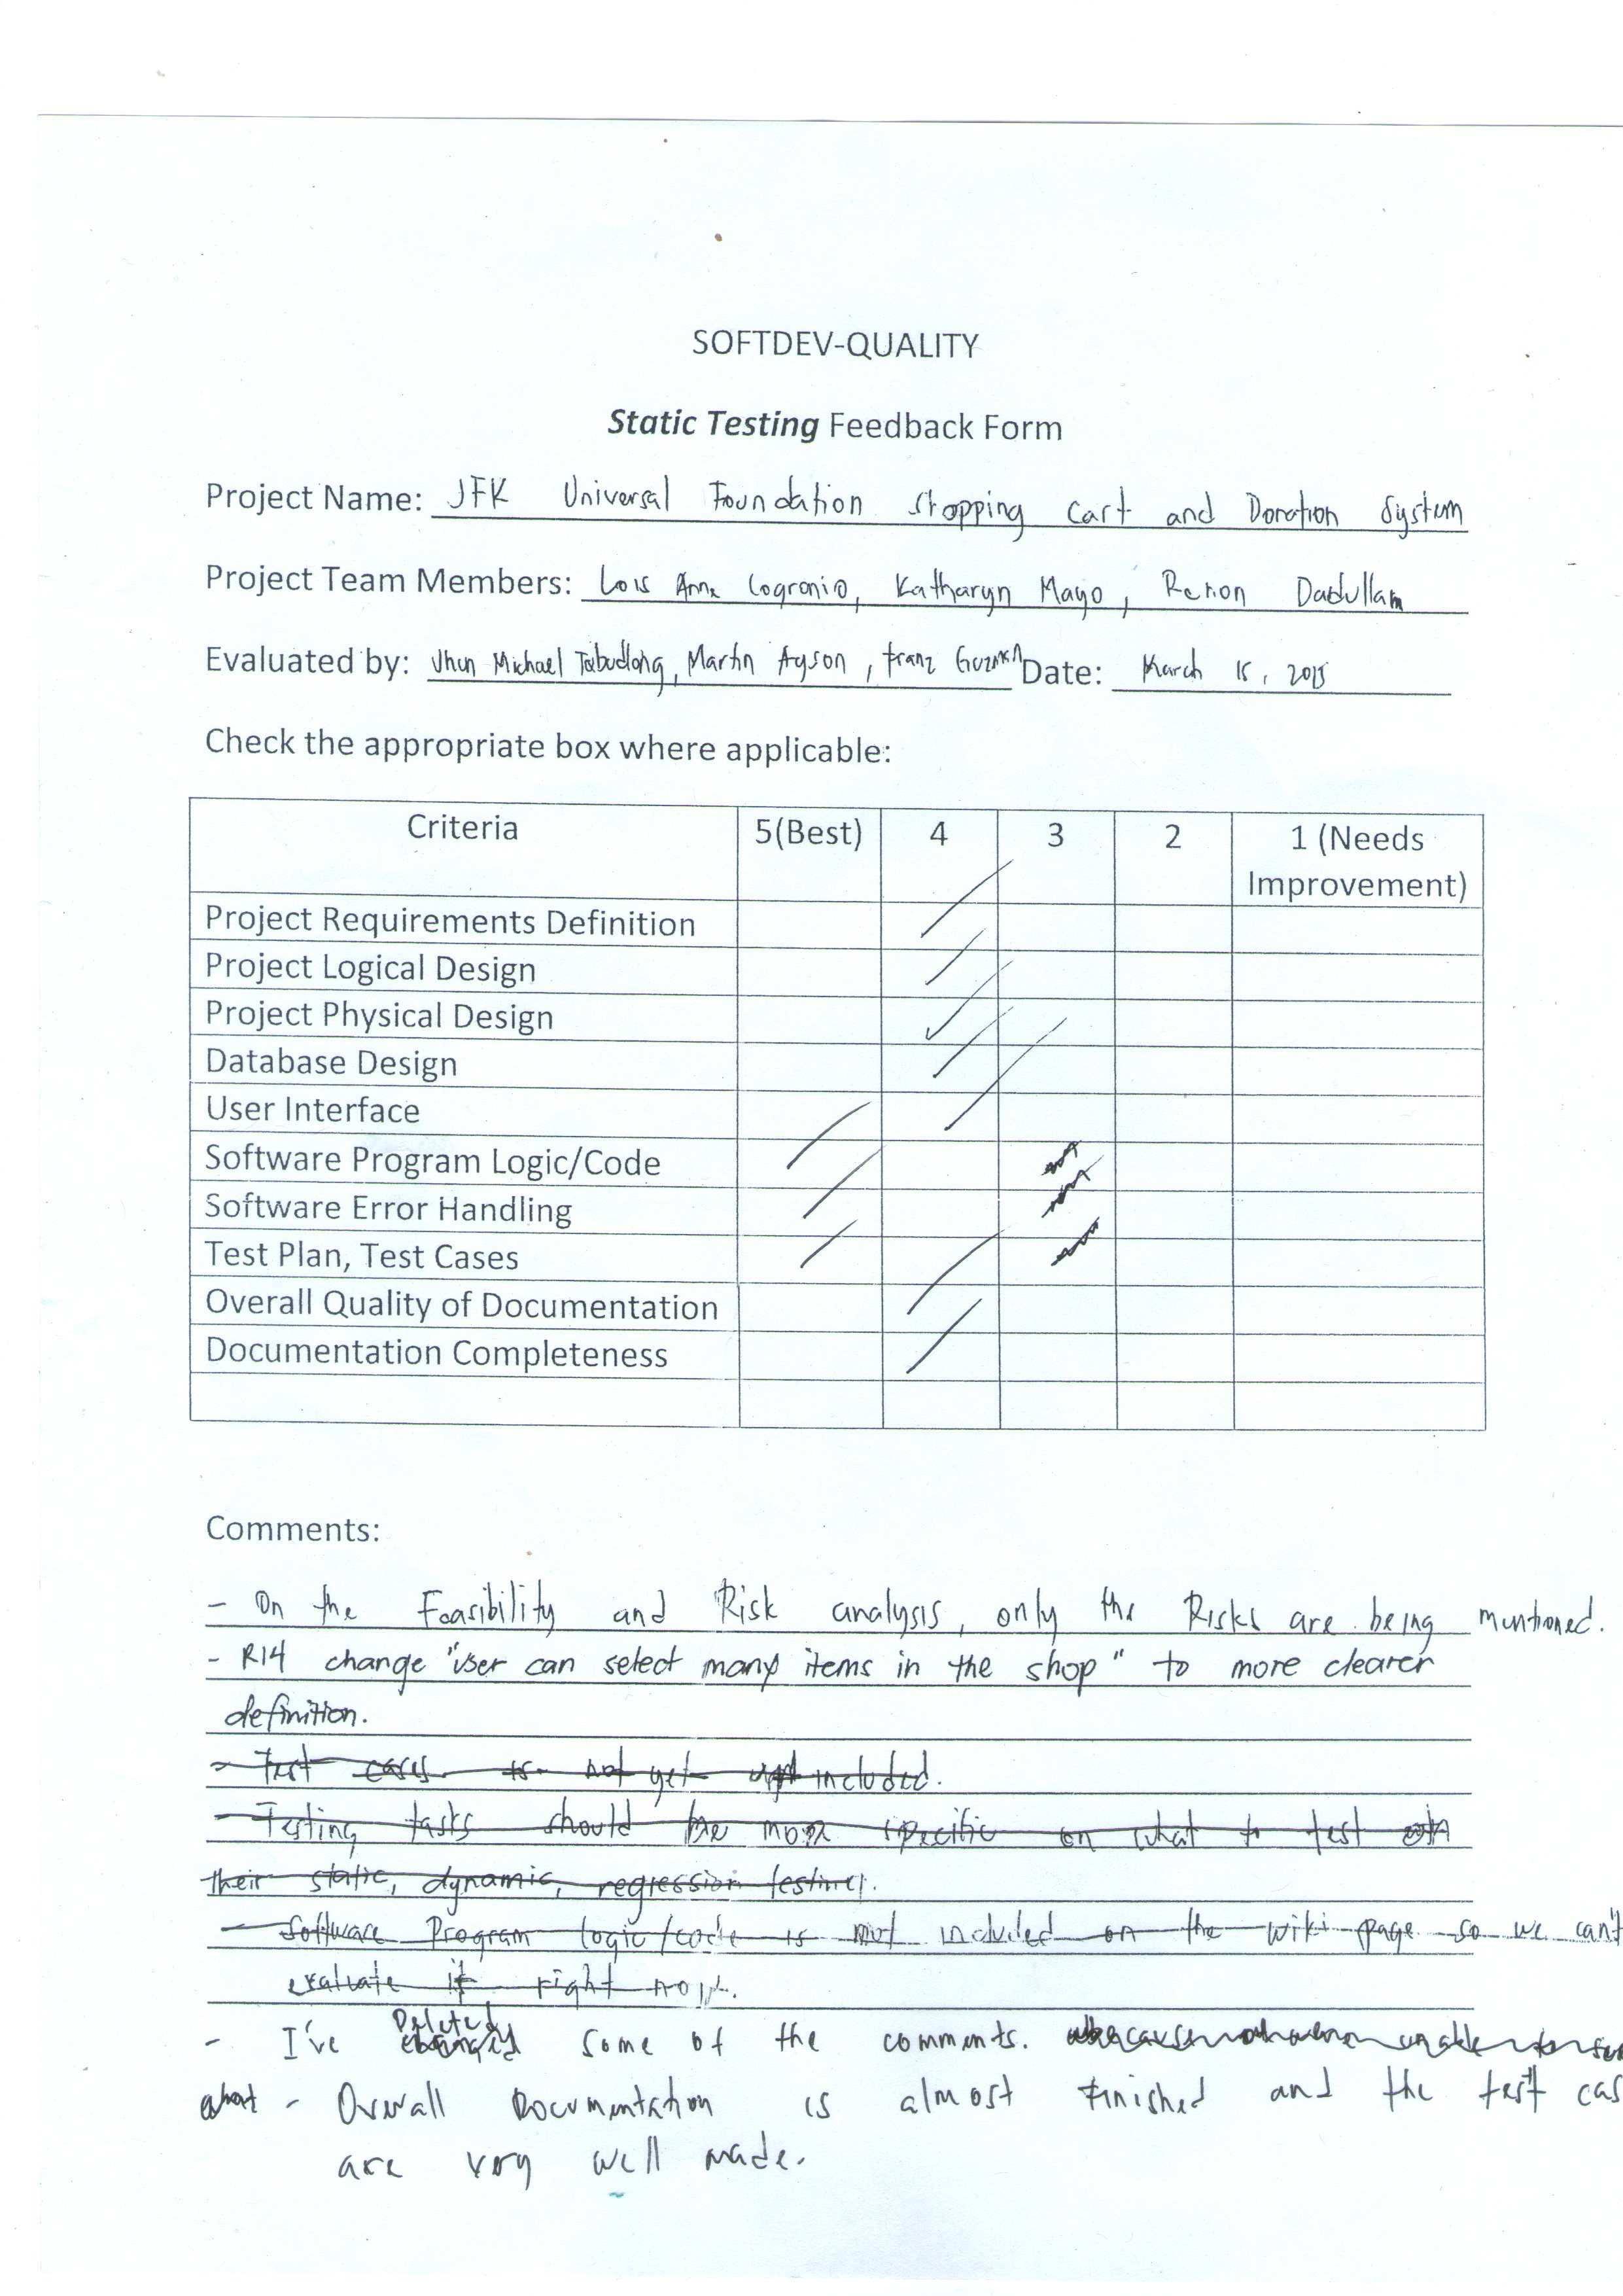 SOFTDEV-QUALITY
Static Testing Feedback Form
Project Name: JFK Universal Foundation Shopping Cart and Donation System
Project Team Members: Lois Anne Logronio, Katharyn Mayo, Renon Dadullam
Evaluated by: Jhun Michael Tabudlong, Martin Ayson, Franz Guzman Date: March 15, 2013
Check the appropriate box where applicable:
Criteria 5(Best) 4 3 2 1 (Needs Improvement)
Project Requirements Definition
Project Logical Design
Project Physical Design
Database Design
User Interface
Software Program Logic/Code
Software Error Handling
Test Plan, Test Cases
Overall Quality of Documentation
Documentation Completeness
Comments:
- On the Feasibility and Risk analysis, only the Risks are being mentioned.
- R14 change "User can select many items in the shop" to more clearer
definition.
- Test cases is not yet included.
- Testing tasks should be more specific on what to test
their static, dynamic, regression testing.
- Software Program logic/code is not included on the wiki page so we can't
evaluate it right now.
- I've Deleted some of the comments.
- Overall Documentation is almost finished and the test cas
are very well made.